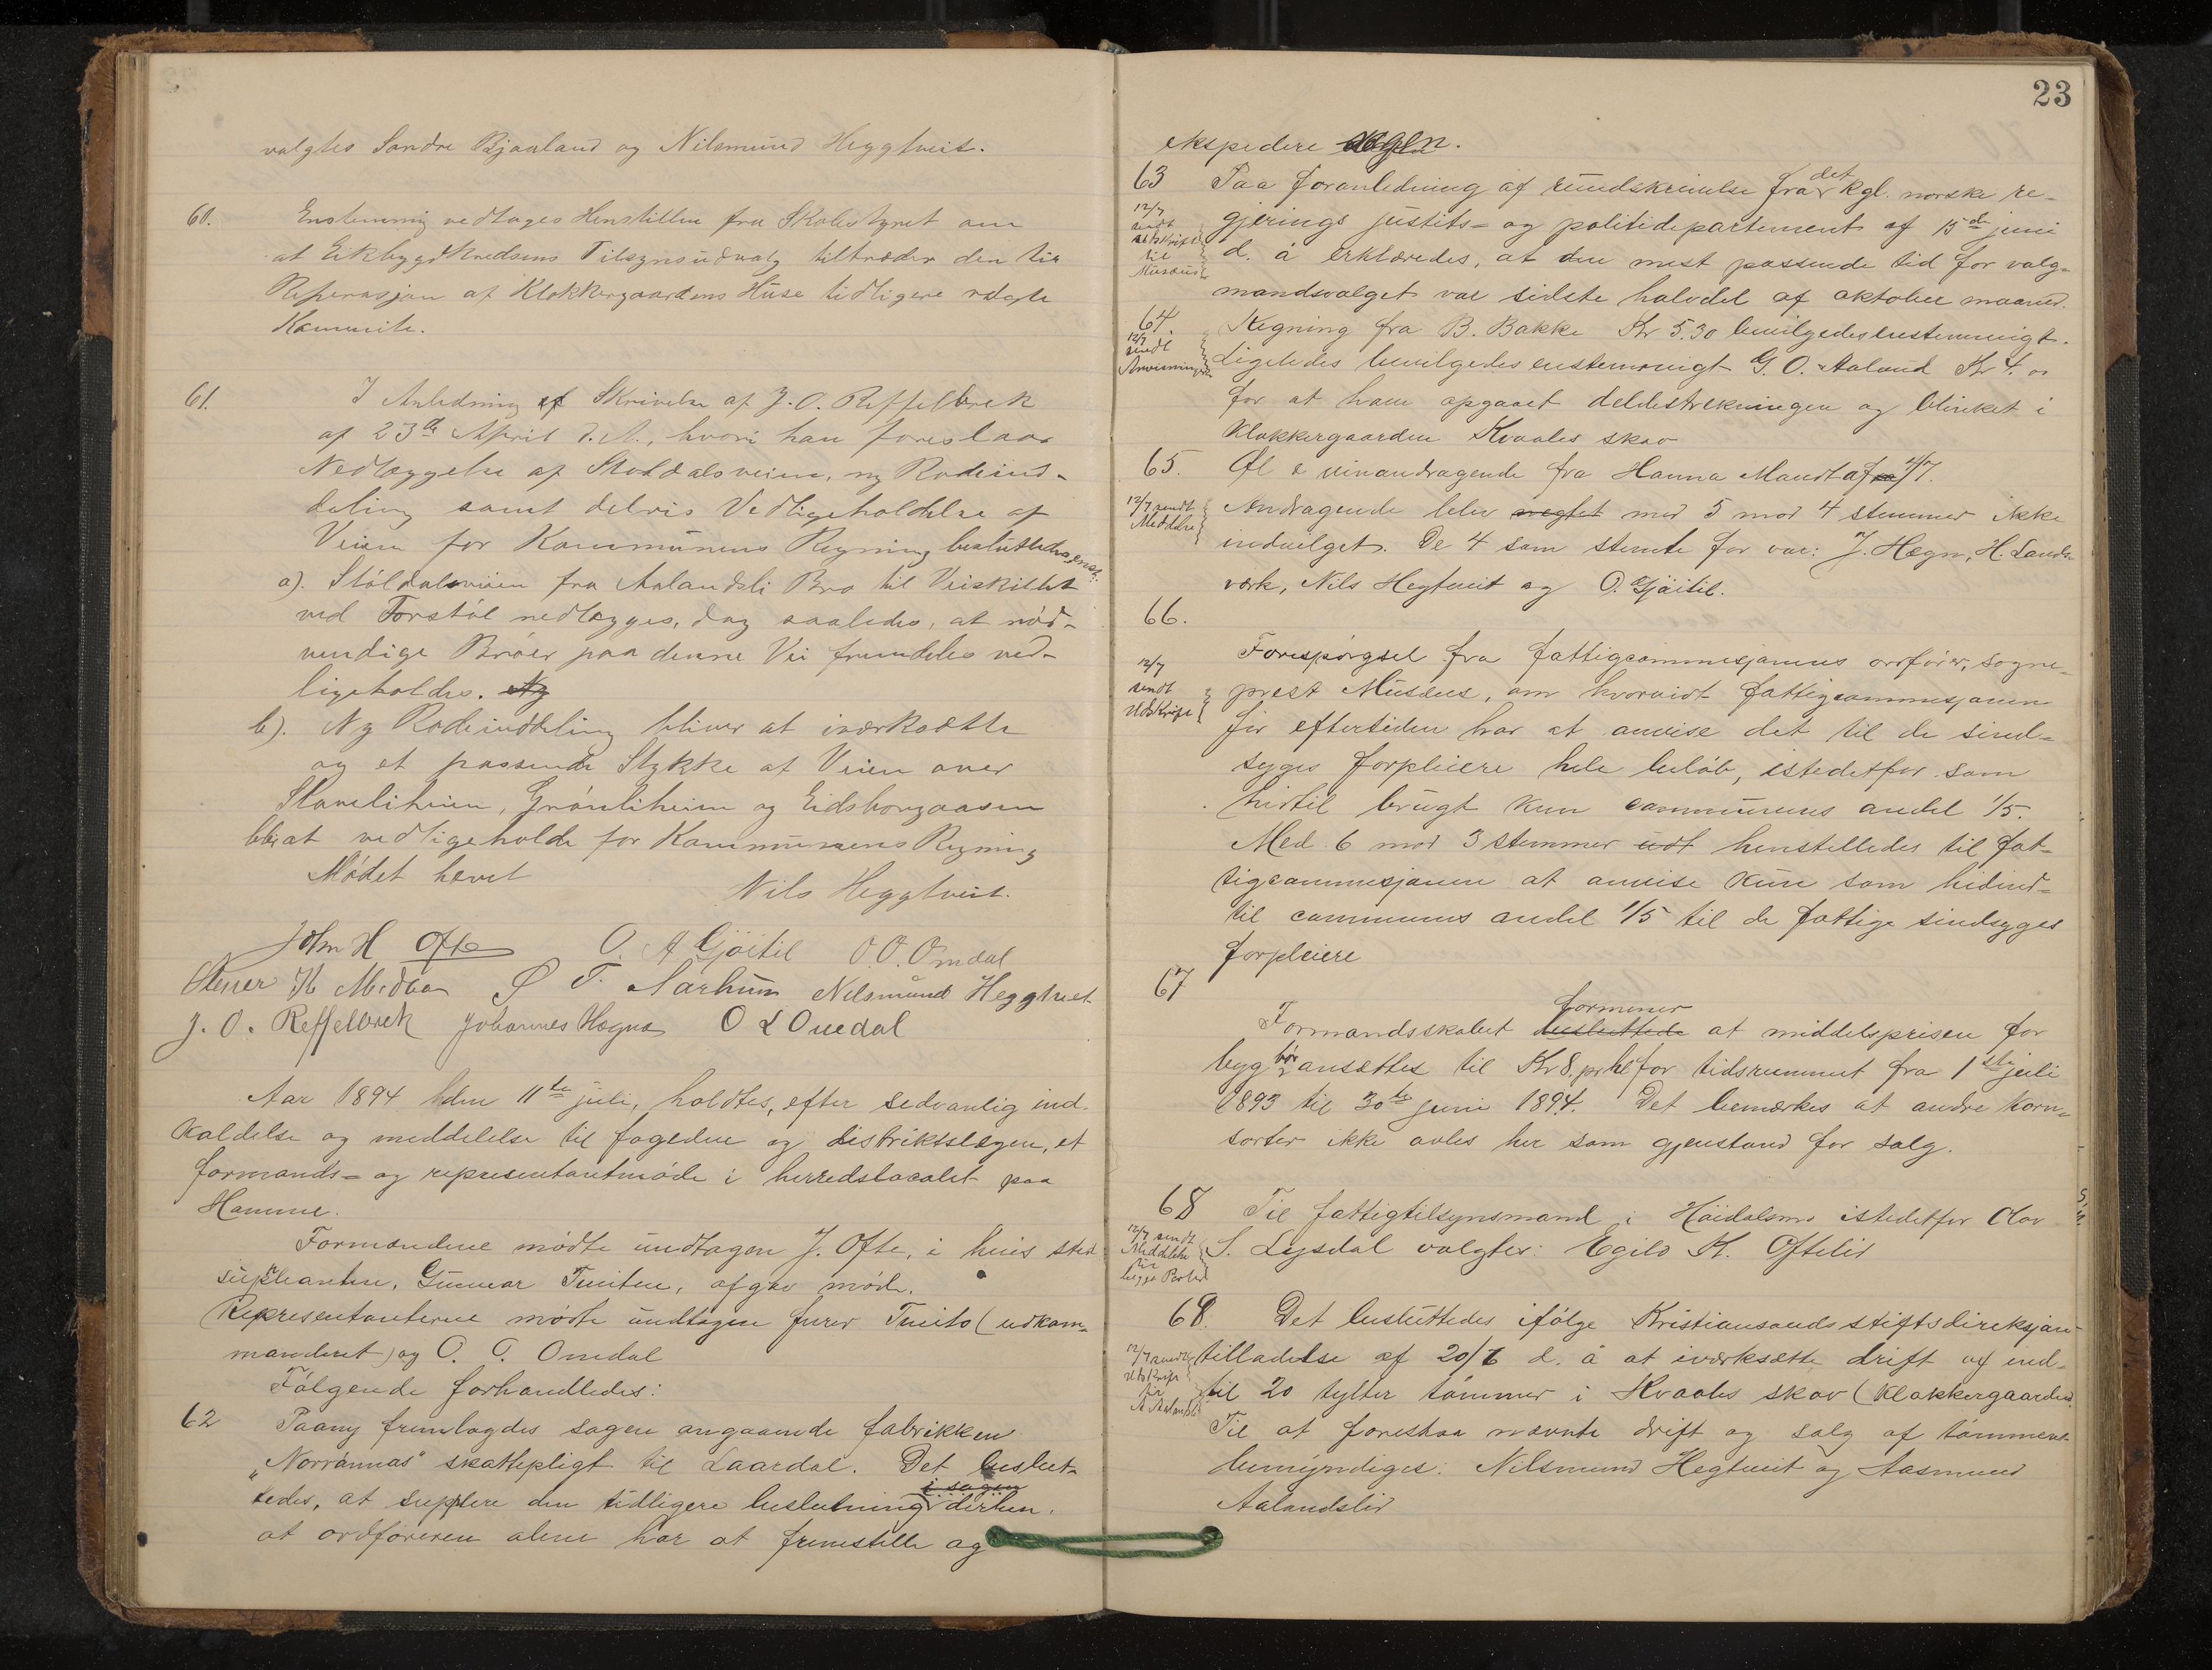 valgtes Sondre Bjaaland og Nilsmund Heggtveit.
60. Enstemmig vedtages Henstillen fra Skolestyret om
at Eikbygdkredsens Tilsynsudvalg tiltræder den til
Reperasjon af Klokkergaardens Huse tidligere valgte
Kommite.
61. I Anledning af Skrivelse af J. O. Reffelbrek
af 23de April d. A., hvori han foreslaar
Nedlæggelse af Støldalsveien, ny Rodeind-
deling samt delvis Vedligeholdelse af
Veien for Kommunens Regning besluttedes enst:
a). Støldalsveien fra Aalandsli Bro til Veiskillet
ved Forstøl nedlægges, dog saaledes, at nød-
vendige Broer paa denne Vei fremdeles ved-
ligeholdes. Ny
b). Ny Rodeinddeling bliver at iværksætte
og et passende Stykke af Veien over
Slaveliheien, Grønliheien og Eidsborgaasen
bliv at vedligeholde for Kommunens Regning
Mødet hævet
Nils Heggtveit.
John H Ofte O. A Gjøitil O. O. Omdal
Stener K Midbøn Ø T. Aarhum Nilsmund Heggtveit
J. O. Reffelbrek Johannes Hægna O L Omdal
Aar 1894 den 11te juli, holdtes, efter sedvanlig ind-
kaldelse og meddelelse til fogeden og distriktslægen, et
formands- og representantmøde i herredslocalet paa
Hamme.
Formændene mødte undtagen J. Ofte, i hvis sted
supleanten, Gunnar Tveiten, afgav møde.
Representanterne mødte undtagen furer Tveito (udkom-
manderet) og O. O. Omdal
Følgende forhandledes:
62 Paany fremlagdes sagen angaaende fabrikken
„Norrønnas" skattepligt til Laardal. Det beslut-
i sagen
tedes, at supplere den tidligere beslutning derhen,
at ordføreren alene har at fremstille og
23
ekspedere sagen.
63 Paa foranledning af rundskrivelse fra det kgl. norske re-
12/7 sendt udskrift til Musæus
gjerings justits- og politidepartement af 15de juni
d. å erklæredes, at den mest passende tid for valg-
mandsvalget var sidste halvdel af oktober maaned.
64. Regning fra B. Bakke Kr 5.30 bevilgedes enstemmigt.
12/7 sendt Anvisninger
Ligeledes bevilgedes enstemmigt G. O. Aaland Kr 4.00
for at have opgaaet deldestrekningen og blinket i
Klokkergaarden Kvaales skov
65. Øl & vinandragende fra Hanna Mandt af 4/7.
12/7 sendt Meddelse
Andragende blev negtet med 5 mod 4 stemmer ikke
indvilget. De 4 som stemte for var: J. Hægn, H. Lands-
værk, Nils Hegtveit og O. Gjøitil.
66.
Forespørgsel fra fattigcommisjonens ordfører, sogne-
12/7 sendt Udskrift
prest Musæus, om hvorvidt fattigcommisjonen
for eftertiden har at anvise det til de sind-
syges forpleiere hele beløb, istedetfor som
hidtil brugt kun communens andel 1/5.
Med 6 mod 3 stemmer udt henstilledes til fat-
tigcommisjonen at anvise kun som hidind-
til communs andel 1/5 til de fattige sindsyges
forpleiere
67
formener
Formandsskabet besluttede at middelsprisen for
byg bør ansættes til Kr 8. pr hl for tidsrummet fra 1ste juli
1893 til 30te juni 1894. Det bemærkes at andre korn-
sorter ikke avles her som gjenstand for salg.
68 Til fattigtilsynsmand i Høidalsmo istedetfor Olav
12/7 sendt Meddelelse til begge Parter
S. Lysdal valgtes: Egild K. Oftelid
68. Det besluttedes ifølge Kristiansands stiftsdireksjons
12/7 sendt Udskrift til A Aalandslid
tilladelse af 20/6 d. å at iværksætte drift af ind-
til 20 tylter tømmer i Kvaales skov (Klokkergaarden)
Til at forestaa nævnte drift og salg af tømmeret
bemyndiges: Nilsmund Hegtveit og Aasmund
Aalandslid